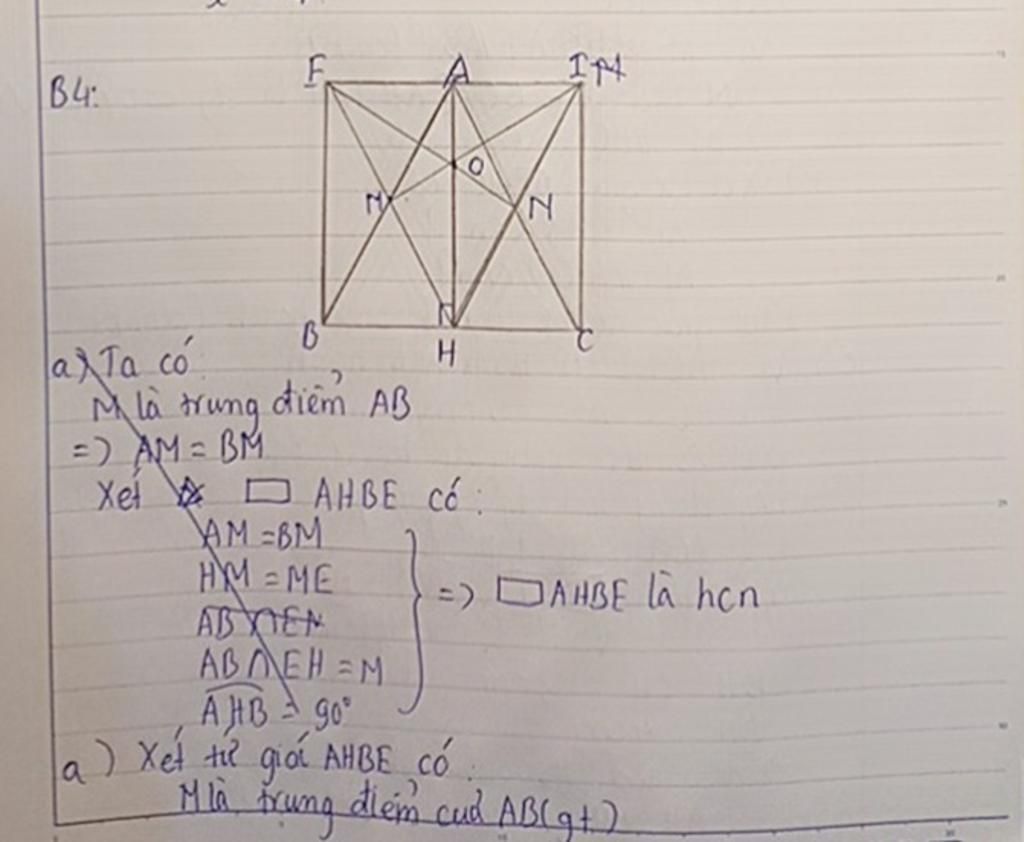 B4:
E A I
O
M N
B H C
a) Ta có
M là trung điểm AB
=> AM = BM
Xét □ AHBE có:
AM = BM
HM = ME
AB ∩ EH = M
AHB = 90°
=> □ AHBE là hcn
a) Xét tứ giác AHBE có:
M là trung điểm của AB (gt)